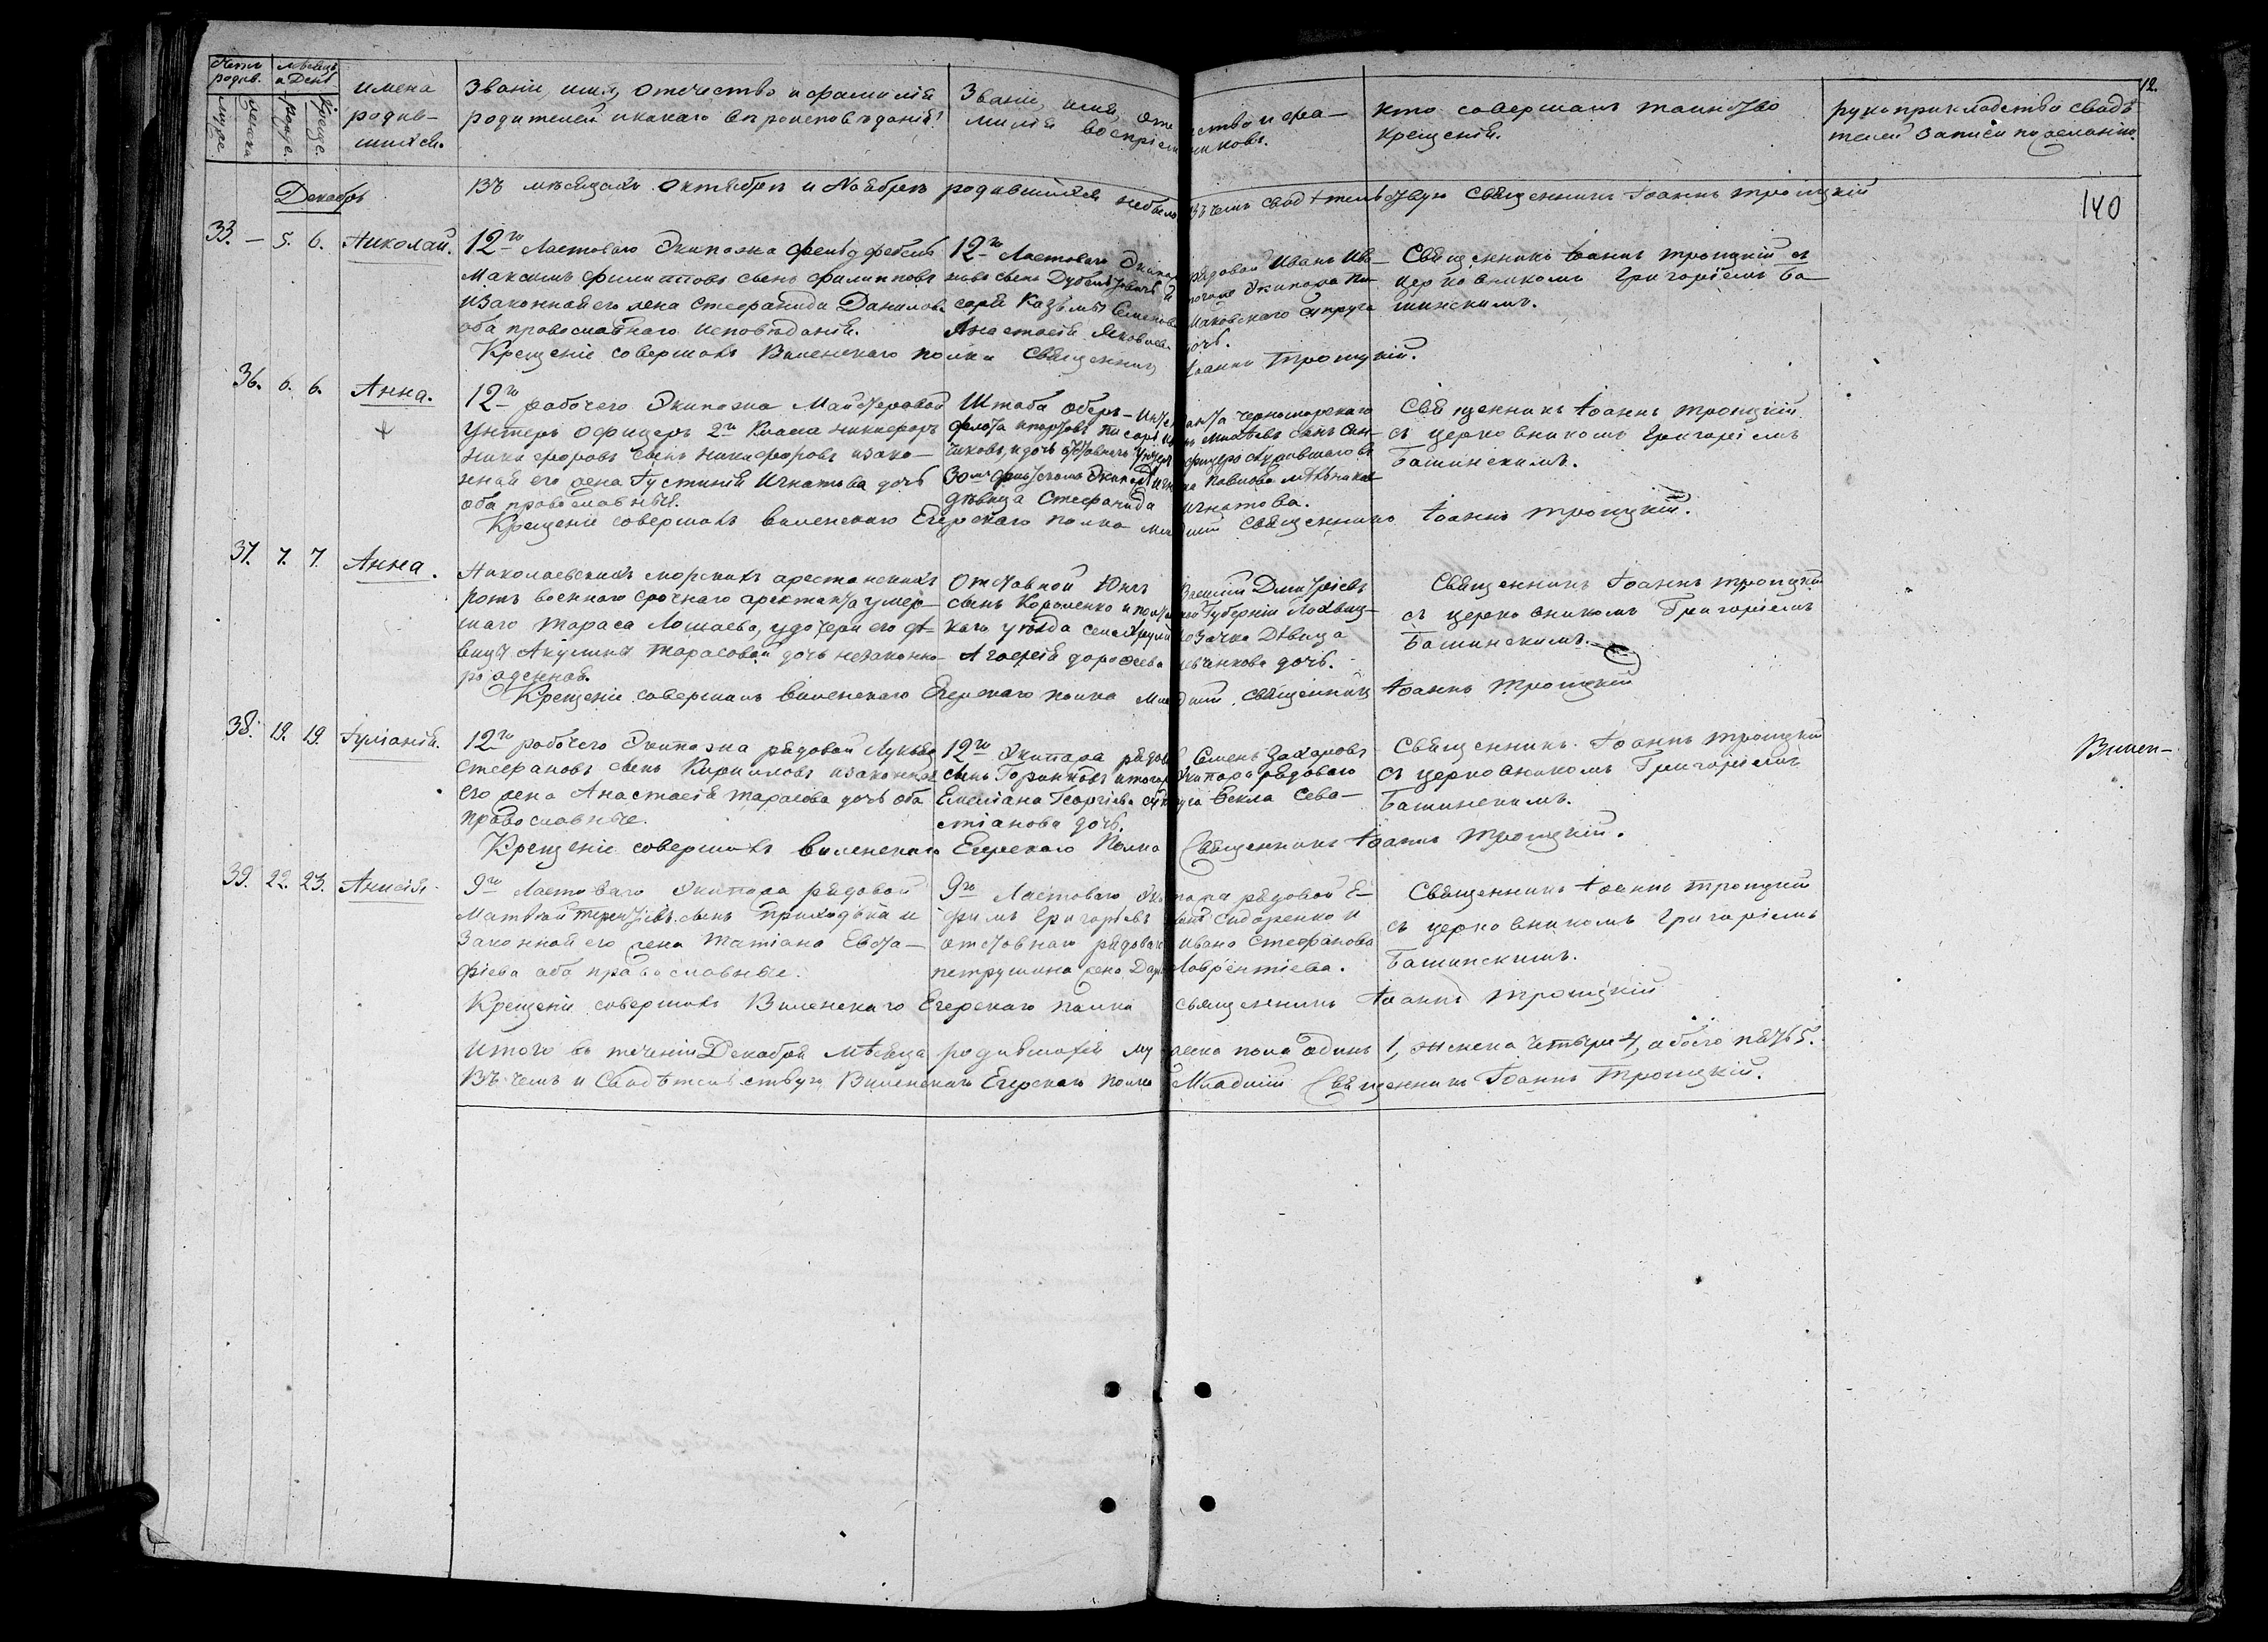 12.
140
Счетъ родив. мѣсяцъ и День
муже. женска рожде. креще.
имена родив-шихся.
Званіе, имя, отечество и фамилія
родителей и какаго вѣроисповѣданія?
Званіе, имя, отечество и фа-
милія воспріемниковъ.
кто совершалъ таинство
крещенія.
рукоприкладство свидѣ
телей записи по желанію.
Декабрь
Въ мѣсяцахъ Октябрѣ и Ноябрѣ родившихся небыло Въ чемъ свидѣтельствую Священникъ Іоаннъ Троицкій
33. — 5. 6. Николай.
12го Ластоваго Экипажа фельдфебель
Максимъ Филиповъ сынъ Филипповъ
изаконная его жена Стефанида Данилова
оба православнаго исповѣданія.
12го Ластоваго Экипажа рядовой Иванъ Ив-
сынъ и тогоже Экипажа пи-
саря Казьмы Семенова Маковскаго супруга
Анастасія Яковлева дочь.
Священникъ Іоаннъ Троицкій съ
церковникомъ Григоріемъ Ба-
шинскимъ.
Крещеніе совершалъ Виленскаго полка Священникъ Іоаннъ Троицкій.
36. 6. 6. Анна.
12го рабочего Экипажа Майстеровой
Унтеръ Офицеръ 2го Класа Никифоръ
Никифоровъ сынъ Никифоровъ изако-
нная его жена Густинія Игнатова дочь
оба православныя.
Штаба Оберъ-Интенданта Черноморскаго
флота и портовъ писарь
30мъ флотскомъ Экипаже
дѣвица Стефанида Игнатова.
Священникъ Іоаннъ Троицкій
съ церковникомъ Григоріемъ
Башинскимъ.
Крещеніе совершалъ Виленскаго Егерскаго полка младшій Священникъ Іоаннъ Троицкій.
37. 7. 7. Анна.
Николаевскихъ морскихъ арестанскихъ
ротъ военнаго срочнаго арестанта умер-
шаго Тараса Лошаева, удочери его дѣ-
вицы Акулины Тарасовой дочь незаконно-
рожденная.
Отставной Юнга Дмитріевъ
сынъ Короленко и Губерніи Лохвиц-
каго уѣзда козачка Дѣвица
Агафія Дорофеева дочь.
Священникъ Іоаннъ Троицкій
съ церковникомъ Григоріемъ
Башинскимъ.
Крещеніе совершалъ Виленскаго Егерскаго полка младшій Священникъ Іоаннъ Троицкій
38. 19. 19. Іуліанія.
12го рабочего Экипажа рядовой Лукьянъ
Стефановъ сынъ Кириловъ изаконная
его жена Анастасія Тарасова дочь оба
православные.
12го Экипажа рядовой Семенъ Захаровъ
сынъ Горинковъ и тогоже Экипажа рядоваго
Емеліана Георгіева супруга Ѳекла Сева-
стіанова дочь.
Священникъ Іоаннъ Троицкій
съ церковникомъ Григоріемъ
Башинскимъ.
Вилен-
Крещеніе совершалъ Виленскаго Егерскаго Полка Священникъ Іоаннъ Троицкій.
39. 22. 23. Анисія.
9го Ластоваго Экипажа рядовой
Матвѣй Терентіевъ сынъ Приходька и
Законной его жена Татіана Евста-
фіева оба православные.
9го Ластоваго Экипажа рядовой Е-
фимъ Григорьевъ сынъ Сидоренко и
отставнаго рядоваго Ивана Стефанова
Петрушина жена Дарья Лаврентіева.
Священникъ Іоаннъ Троицкій
съ церковникомъ Григоріемъ
Башинскимъ.
Крещеніе совершалъ Виленскаго Егерскаго полка священникъ Іоаннъ Троицкій
Итого въ теченіи Декабря мѣсяца родившихся мужеска пола одинъ 1, женска четыре 4, обоего пять 5.
Въ чемъ и Свидѣтельствую Виленскаго Егерскаго полка Младшій Священникъ Іоаннъ Троицкій.